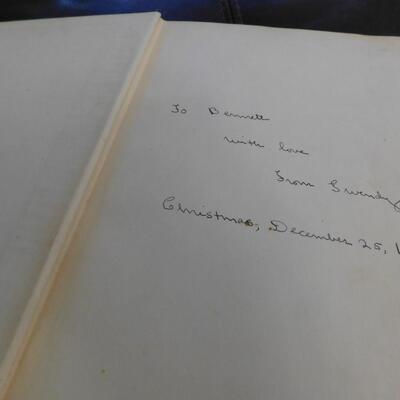 To Bennett
with love
From Gwendy
Christmas, December 25, 1